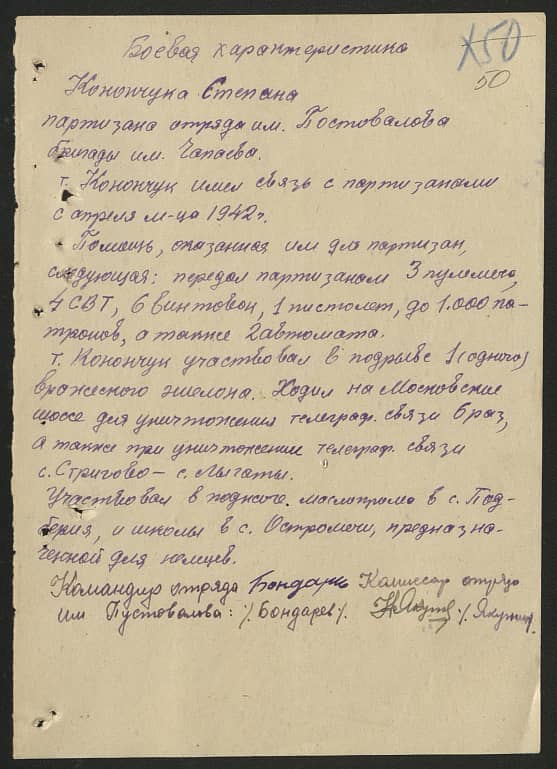 Х50
50
Боевая характеристика
Конончука Степана
партизана отряда им. Постовалова
бригады им. Чапаева.
т. Конончук имел связь с партизанами
с апреля м-ца 1942 г.
Помощь, оказанная им для партизан,
следующая: передал партизанам 3 пулемета,
4 СВТ, 6 винтовок, 1 пистолет, до 1.000 па-
тронов, а также 2 автомата.
т. Конончук участвовал в подрыве 1 (одного)
вражеского эшелона. Ходил на Московские
шоссе для уничтожения телеграф. связи 6 раз,
а также при уничтожении телеграф. связи
с. Стригово – с. Лыгаты.
Участвовал в поджоге маслопрома в с. Под-
берия, и школы в с. Остромечи, предназна-
ченной для немцев.
Командир отряда Бондарь Комиссар отряда
им. Пустовалова: /. Бондарев /. /. Якунин /.